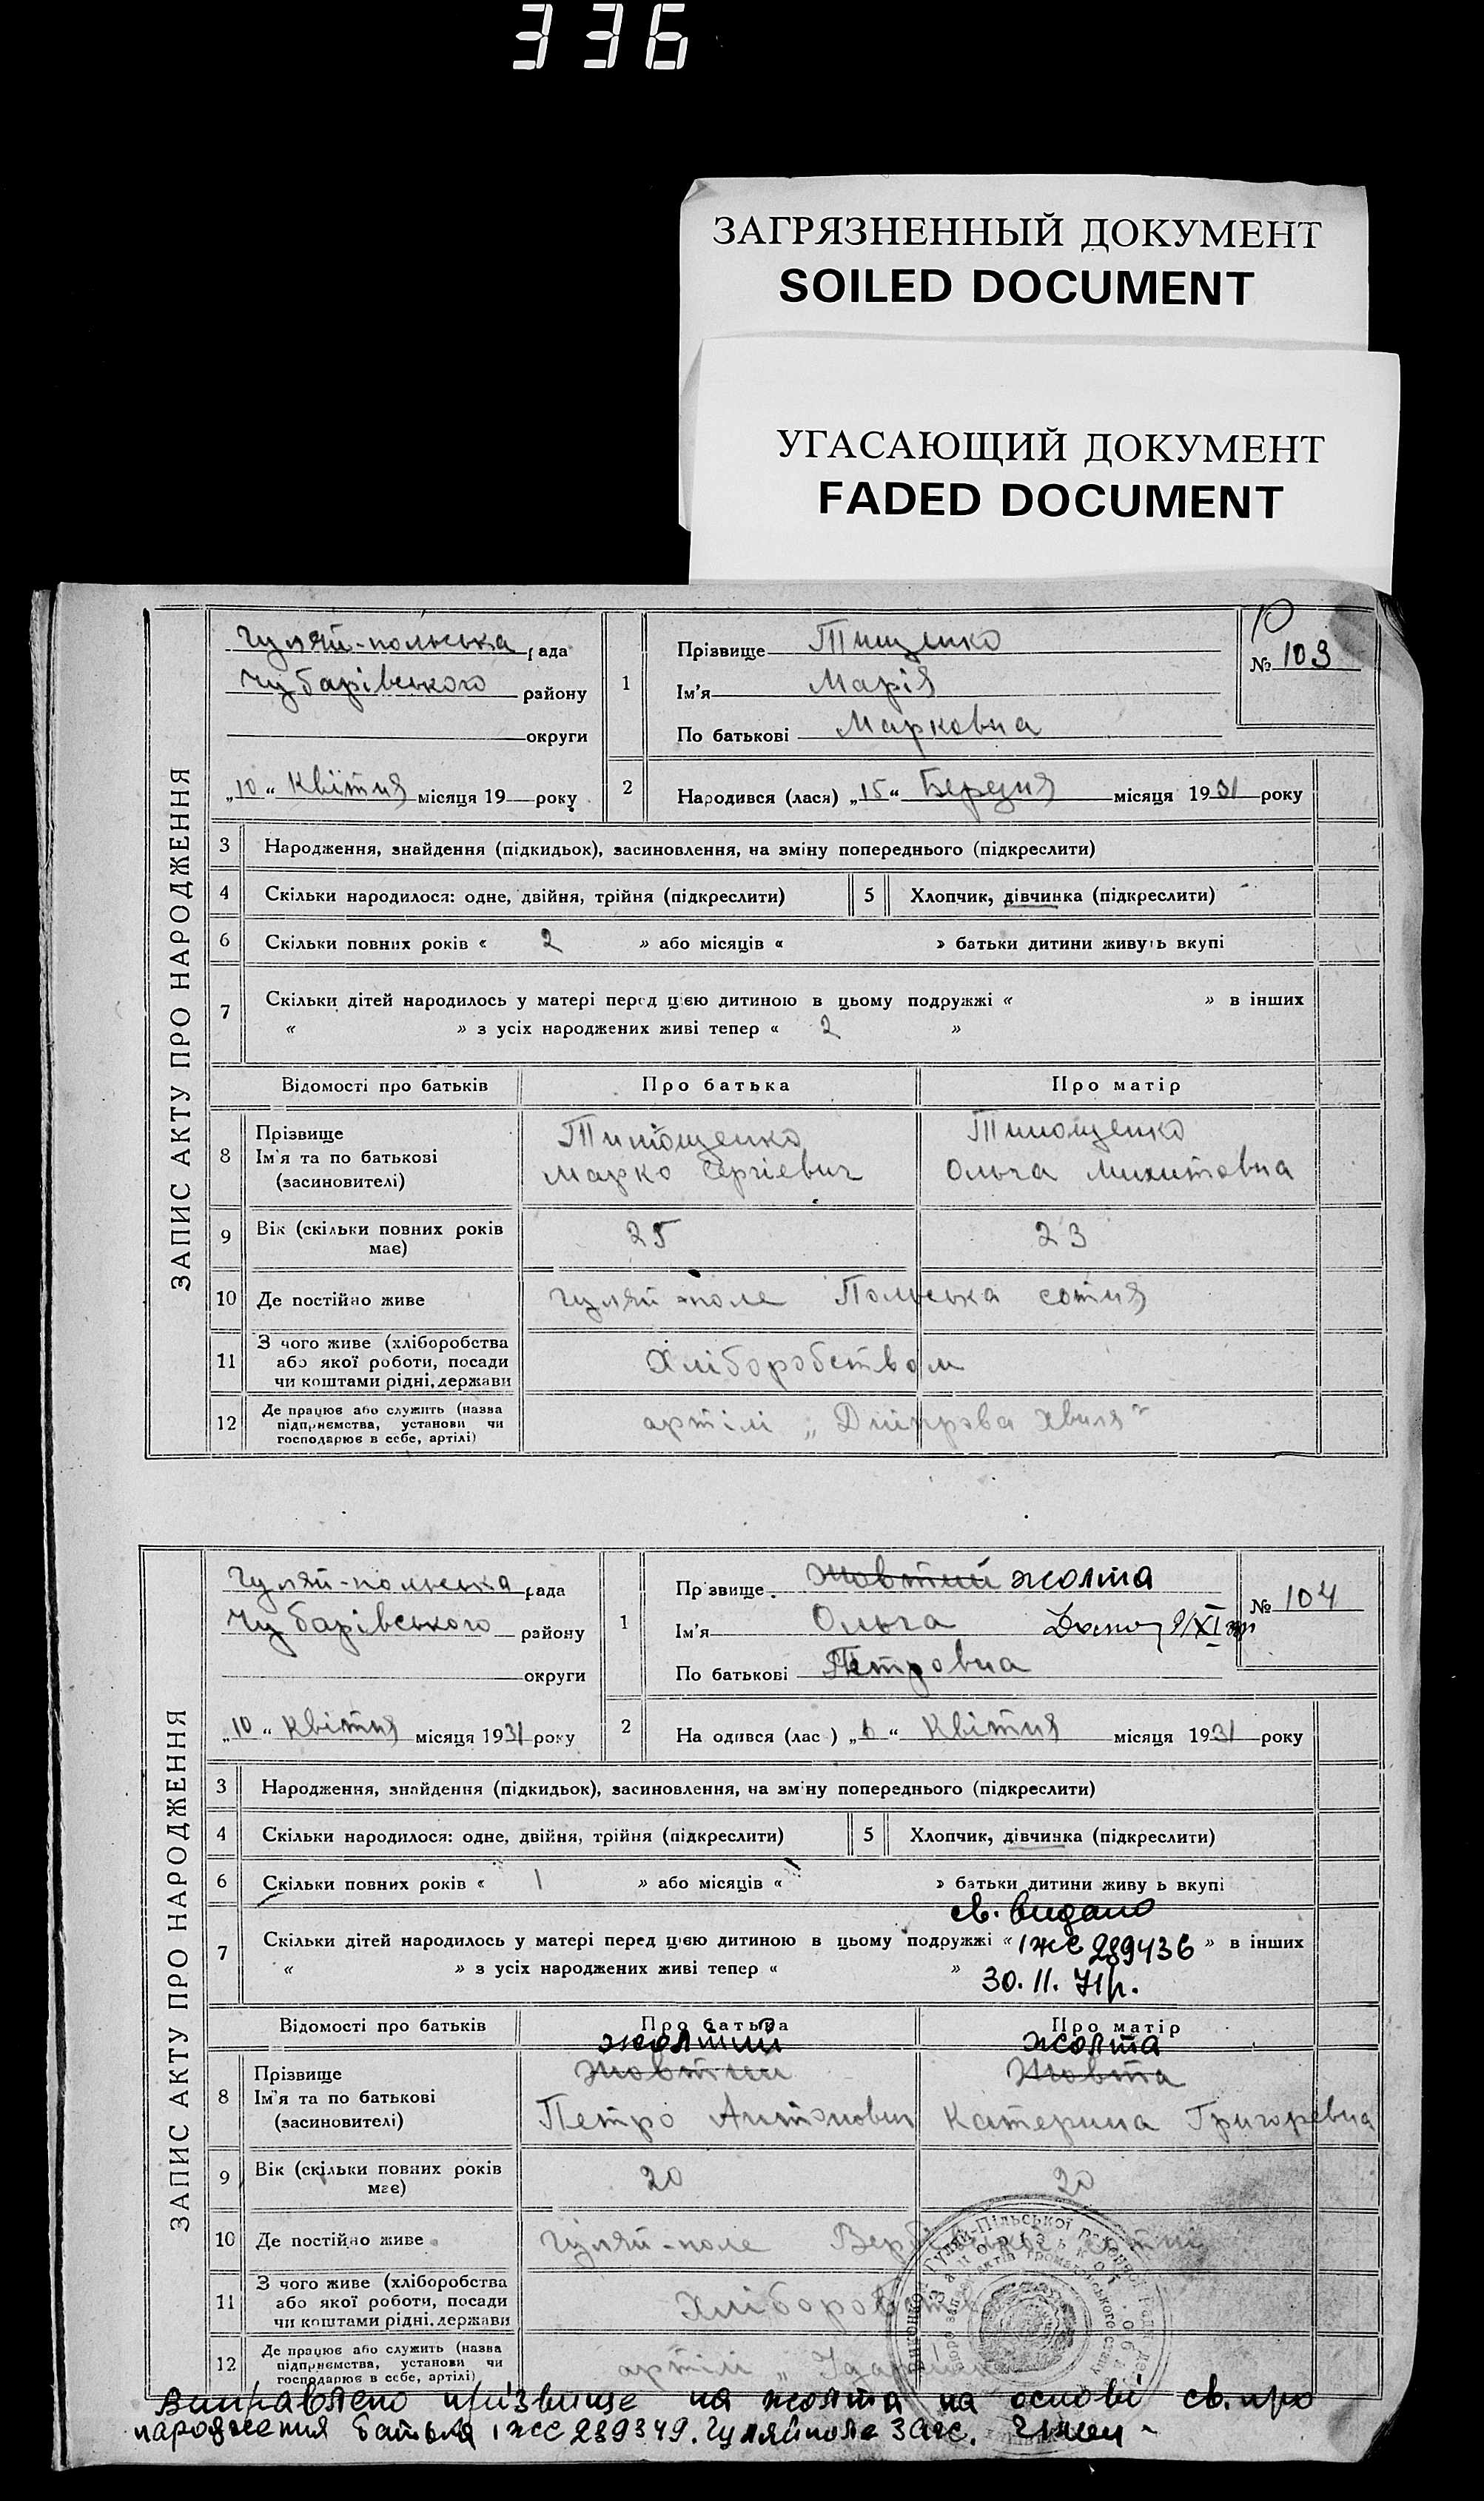 336
ЗАГРЯЗНЕННЫЙ ДОКУМЕНТ
SOILED DOCUMENT
УГАСАЮЩИЙ ДОКУМЕНТ
FADED DOCUMENT
ЗАПИС АКТУ ПРО НАРОДЖЕННЯ
Гуляй-польська рада
Чубарівського району
округи
„10“ Квітня місяця 19 року
1
Прізвище Тищенко
Ім'я Марія
По батькові Марковна
№ 103
2 Народився (лася) „15“ Березня місяця 1931 року
3 Народження, знайдення (підкидьок), засиновлення, на зміну попереднього (підкреслити)
4 Скільки народилося: одне, двійня, трійня (підкреслити) 5 Хлопчик, дівчинка (підкреслити)
6 Скільки повних років « 2 » або місяців « » батьки дитини живуть вкупі
7 Скільки дітей народилось у матері перед цією дитиною в цьому подружжі « » в інших
« » з усіх народжених живі тепер « 2 »
Відомості про батьків Про батька Про матір
8 Прізвище
Ім'я та по батькові
(засиновителі)
Тимощенко
Марко Сергіевич
Тимощенко
Ольга Микитовна
9 Вік (скільки повних років має) 25 23
10 Де постійно живе Гуляй-поле Польська сотня
11 З чого живе (хліборобства
або якої роботи, посади
чи коштами рідні, держави
Хліборобством
12 Де працює або служить (назва
підприємства, установи чи
господарює в себе, артілі)
артілі „Дніпрова Хвиля“
ЗАПИС АКТУ ПРО НАРОДЖЕННЯ
Гуляй-польська рада
Чубарівського району
округи
„10“ Квітня місяця 1931 року
1
Прізвище Жовтий Жолта
Ім'я Ольга
По батькові Петровна
№ 104
2 На одився (лас ) „6“ Квітня місяця 1931 року
3 Народження, знайдення (підкидьок), засиновлення, на зміну попереднього (підкреслити)
4 Скільки народилося: одне, двійня, трійня (підкреслити) 5 Хлопчик, дівчинка (підкреслити)
6 Скільки повних років « 1 » або місяців « » батьки дитини живу ь вкупі
св. видано
7 Скільки дітей народилось у матері перед цією дитиною в цьому подружжі « І ЖС 289436 » в інших
« » з усіх народжених живі тепер « » 30.11.71р.
Відомості про батьків Про батька Про матір
8 Прізвище
Ім'я та по батькові
(засиновителі)
Жолтий
Жовтий
Петро Антонович
Жолта
Жовта
Катерина Григоревна
9 Вік (скільки повних років має) 20 20
10 Де постійно живе Гуляй-поле
11 З чого живе (хліборобства
або якої роботи, посади
чи коштами рідні, держави
12 Де працює або служить (назва
підприємства, установи чи
господарює в себе, артілі)
артілі
Виправлено прізвище на Жолта на основі св. про
народження батька І ЖС 289349. Гуляйполе ЗАГС.